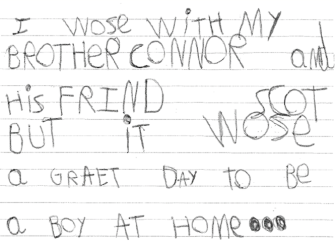 I WOSE WITH MY
BROTHER CONNOR and
HiS FRIND SCOT
BUT iT WOSE
a GRAET DAY TO BE
a BOY AT HOME...